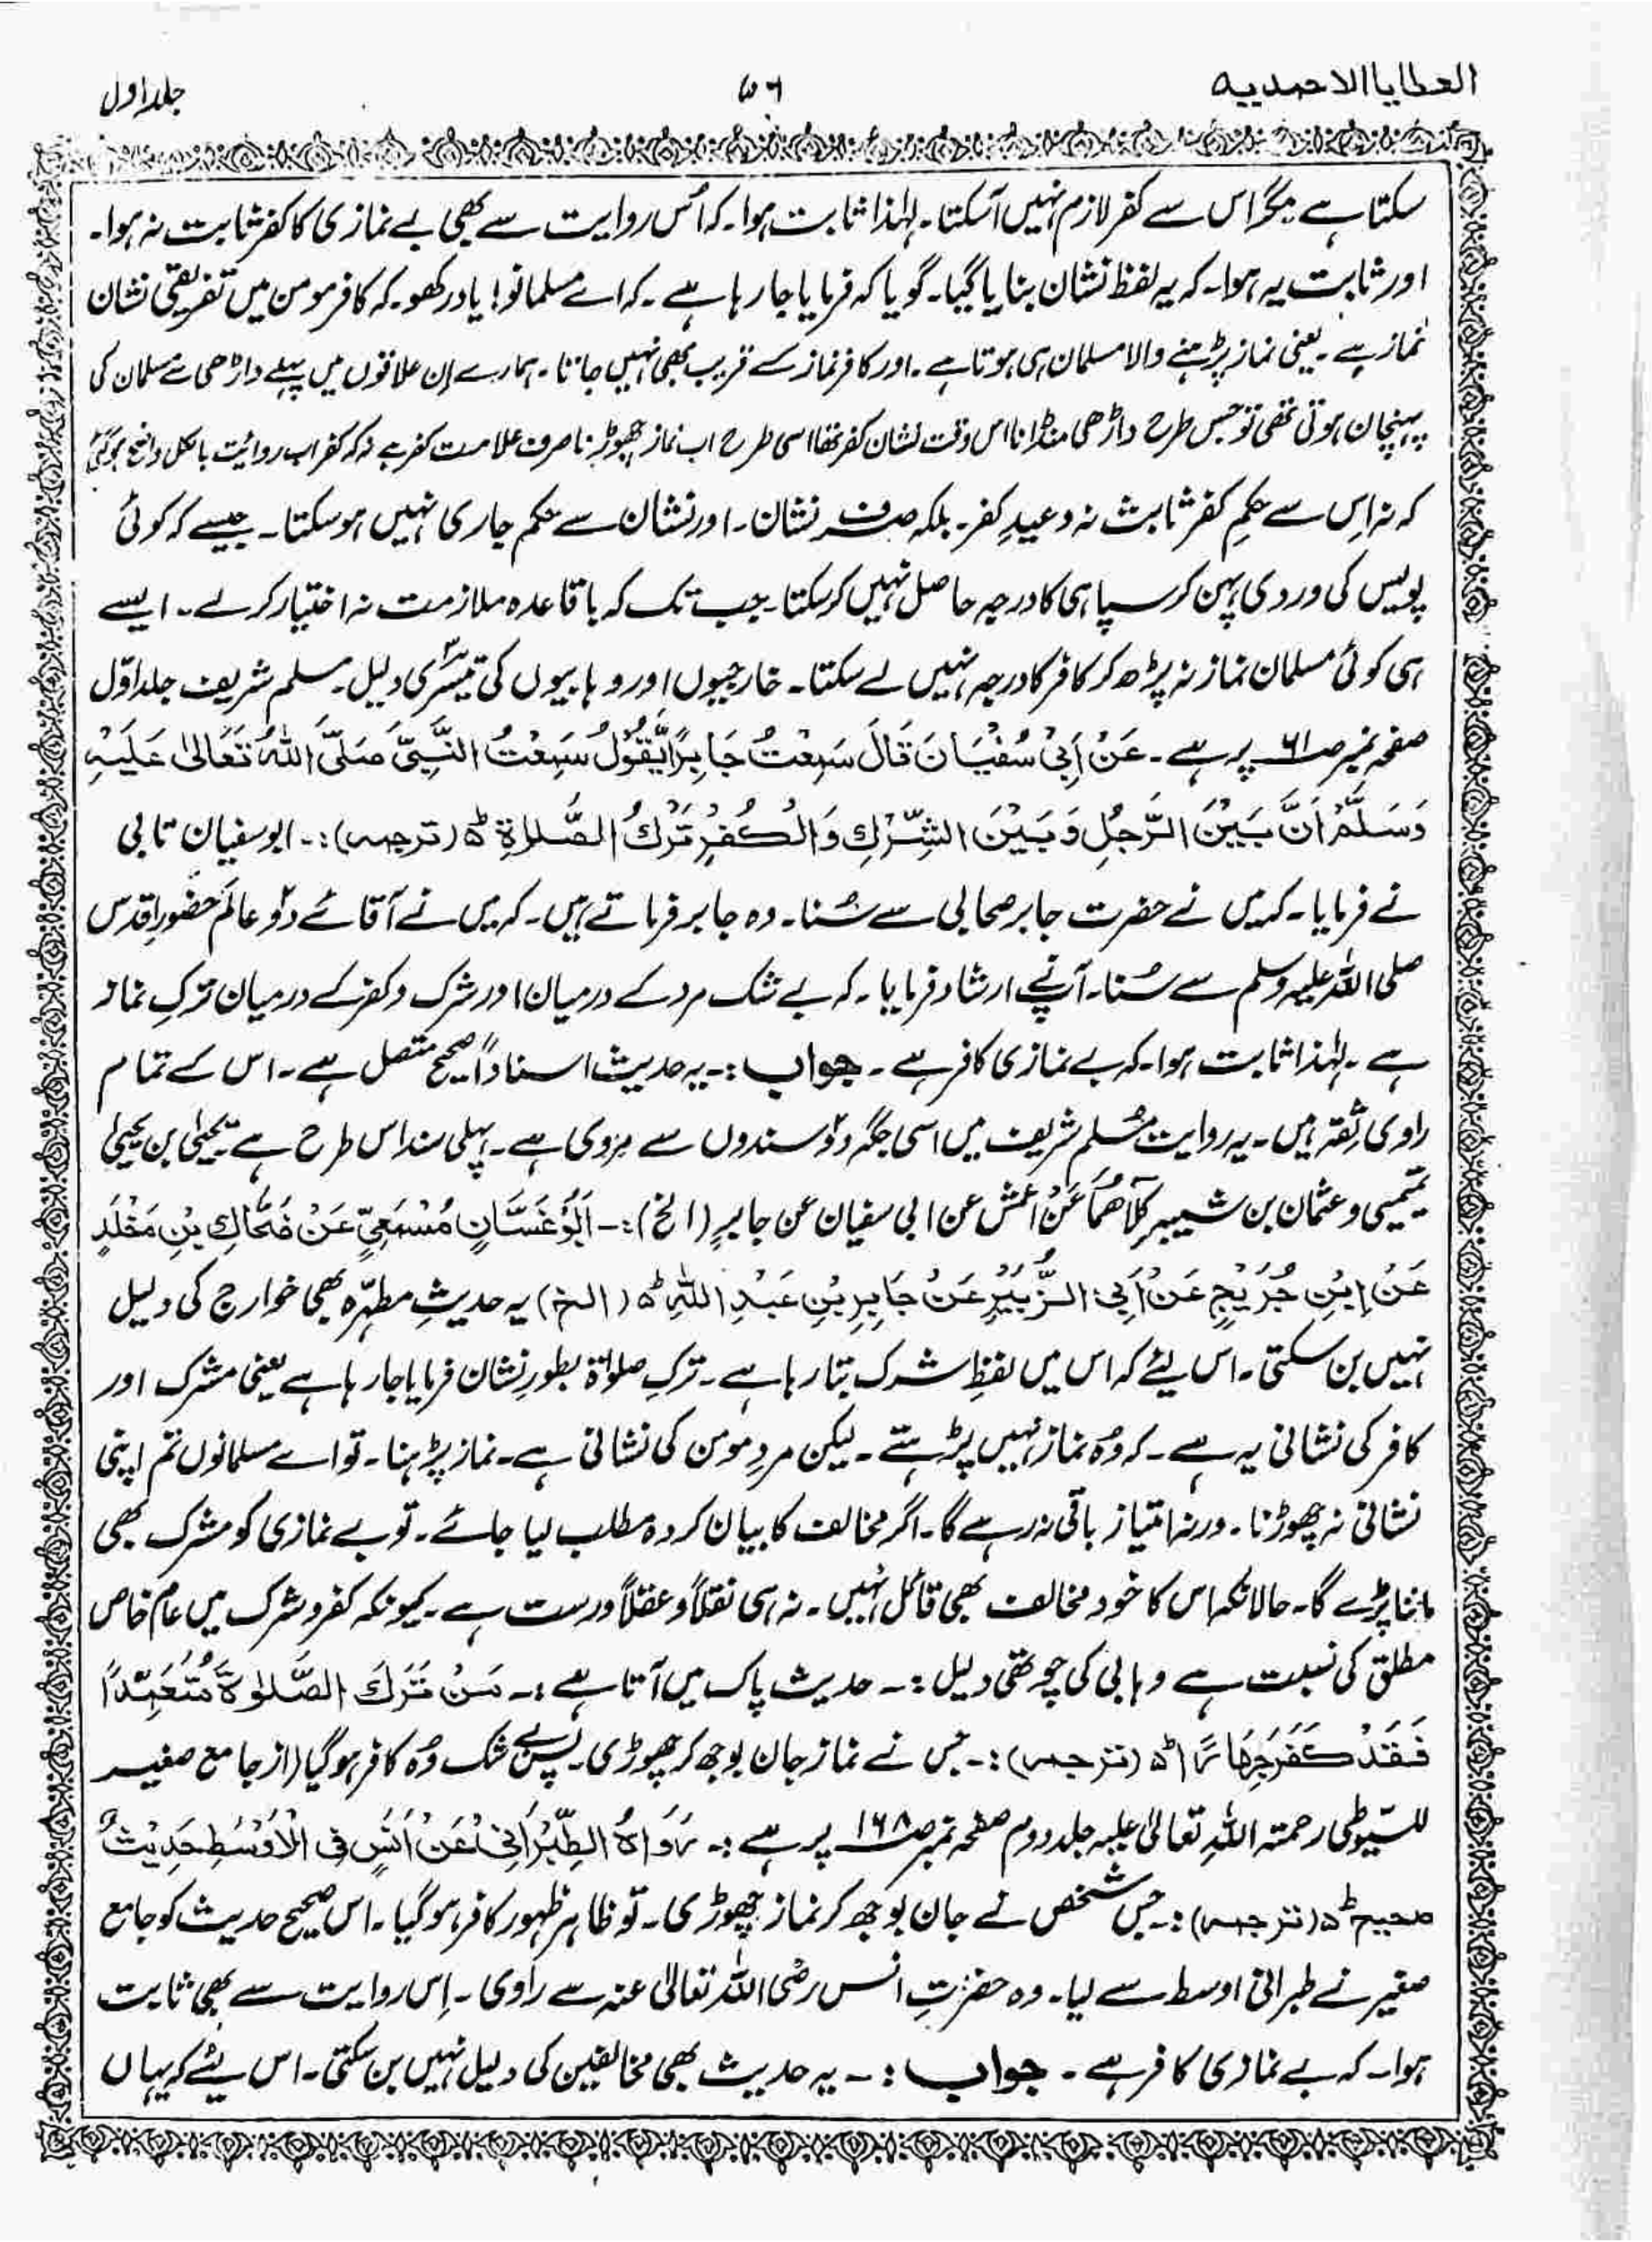 العطایا الاحمدیہ
۵۶
جلد اول
سکتا ہے مگر اس سے کفر لازم نہیں آسکتا۔ لہٰذا ثابت ہوا۔ کہ اُس روایت سے بھی بے نمازی کا کفر ثابت نہ ہوا۔
اور ثابت یہ ہوا۔ کہ یہ لفظ نشان بنایا گیا۔ گویا کہ فرمایا جا رہا ہے ۔ کہ اے مسلمانو! یاد رکھو۔ کہ کافر مومن میں تفریقی نشان
نماز ہے ۔ یعنی نماز پڑہنے والا مسلمان ہی ہوتا ہے ۔ اور کافر نماز کے قریب بھی نہیں جاتا ۔ ہمارے اِن علاقوں میں پہلے داڑھی سے مسلمان کی
پہنچان ہوتی تھی تو جس طرح داڑھی منڈانا اس وقت نشان کفر تھا اسی طرح اب نماز چھوڑنا صرف علامت کفر ہے نہ کہ کفر اب روائیت بالکل واضح ہوگئی
کہ نہ اِس سے حکمِ کفر ثابت نہ وعیدِ کفر۔ بلکہ صرف نشان۔ اور نشان سے حکم جاری نہیں ہو سکتا۔ جیسے کہ کوئی
پولیس کی وردی پہن کر سپاہی کا درجہ حاصل نہیں کر سکتا۔ جب تک کہ باقاعدہ ملازمت نہ اختیار کرلے۔ ایسے
ہی کوئی مسلمان نماز نہ پڑھ کر کافر کا درجہ نہیں لے سکتا۔ خارجیوں اور وہابیوں کی تیسری دلیل۔ مسلم شریف جلد اوّل
صفحہ نمبر صا۶ پر ہے ۔ عَنْ اَبِیْ سُفْیَانَ قَالَ سَمِعْتُ جَابِرًا یَّقُوْلُ سَمِعْتُ النَّبِیَّ صَلَّی اللّٰہُ تَعَالٰی عَلَیْہِ
وَسَلَّمَ اَنَّ بَیْنَ الرَّجُلِ وَبَیْنَ الشِّرْكِ وَالْکُفْرِ تَرْكُ الصَّلٰاۃِ ط۵ (ترجمہ):۔ ابوسفیان تابی
نے فرمایا۔ کہ میں نے حضرت جابر صحابی سے سُنا۔ وہ جابر فرماتے ہیں۔ کہ میں نے آقائے دوعالَم حضورِ اقدس
صلی اللہ علیہ وسلم سے سُنا۔ آپنے ارشاد فرمایا ۔ کہ بے شک مرد کے درمیان اور شرک وکفر کے درمیان ترکِ نماز
ہے ۔ لہٰذا ثابت ہوا۔ کہ بے نمازی کافر ہے ۔ جواب :۔ یہ حدیث اسناداً صحیح متصل ہے ۔ اس کے تمام
راوی ثِقہ ہیں ۔ یہ روایت مُسلم شریف میں اسی جگہ دو سندوں سے مروی ہے ۔ پہلی سند اس طرح ہے یحییٰ بن یحییٰ
تمیمی و عثمان بن شیبہ کلاَھُمَا عَنْ اعمش عن ابی سفیان عن جابرٍ (الخ) :۔ اَبُوْغَسَّانٍ مُسْمَعِیٍّ عَنْ ضَحَّاكِ بْنِ مَخْلَدٍ
عَنْ اِبْنِ جُرَیْجٍ عَنْ اَبِی الزُّبَیْرِ عَنْ جَابِرِ بْنِ عَبْدِ اللّٰہِ ط۵ (الخ) یہ حدیثِ مطہّرہ بھی خوارج کی دلیل
نہیں بن سکتی۔ اس لیئے کہ اس میں لفظِ شرک بتا رہا ہے ۔ ترکِ صلوٰۃ بطورِ نشان فرمایا جا رہا ہے یعنی مشرک اور
کافر کی نشانی یہ ہے ۔ کہ وُہ نماز نہیں پڑہتے ۔ لیکن مردِ مومن کی نشانی ہے ۔ نماز پڑہنا۔ تو اے مسلمانوں تم اپنی
نشانی نہ چھوڑنا ۔ ورنہ امتیاز باقی نہ رہے گا۔ اگر مخالف کا بیان کردہ مطلب لیا جائے ۔ تو بے نمازی کو مشرک بھی
ماننا پڑے گا۔ حالانکہ اس کا خود مخالف بھی قائل نہیں ۔ نہ ہی نقلاً و عقلاً درست ہے ۔ کیونکہ کفر و شرک میں عام خاص
مطلق کی نسبت ہے وہابی کی چوتھی دلیل :۔ حدیث پاک میں آتا ہے :۔ مَنْ تَرَكَ الصَّلٰوۃَ مُتَعَمِّدًا
فَقَدْ کَفَرَ جِھَارًا ط۵ (ترجمہ) :۔ جس نے نماز جان بوجھ کر چھوڑی۔ پس بے شک وُہ کافر ہو گیا (از جامع صغیر
للسّیوطی رحمتہ اللہِ تعالیٰ علیہ جلد دوم صفحہ نمبر صـ۱۶۸ پر ہے :۔ رَوَاہُ الطِّبْرَانِیْ عَنْ اَنَسٍ فِی الْاَوْسَطِ حَدِیْثٌ
صحیح ط۵ (ترجمہ) :۔ جس شخص نے جان بوجھ کر نماز چھوڑی ۔ تو ظاہر ظہور کافر ہو گیا ۔ اس صحیح حدیث کو جامع
صغیر نے طبرانی اوسط سے لیا۔ وہ حضرتِ انس رضی اللہ تعالیٰ عنہ سے راوی ۔ اِس روایت سے بھی ثابت
ہوا۔ کہ بے نمازی کافر ہے ۔ جواب :۔ یہ حدیث بھی مخالفین کی دلیل نہیں بن سکتی ۔ اس لیئے کہ یہاں